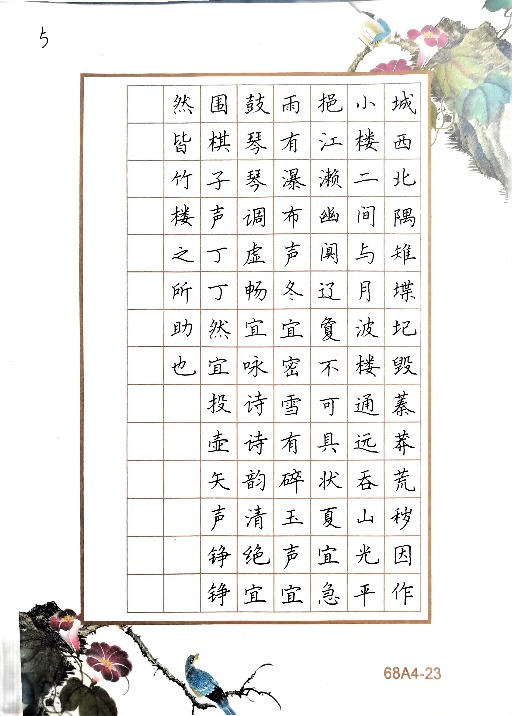 5
城西北隅雉堞圮毁蓁莽荒秽因作
小楼二间与月波楼通远吞山光平
挹江濑幽阒辽夐不可具状夏宜急
雨有瀑布声冬宜密雪有碎玉声宜
鼓琴琴调虚畅宜咏诗诗韵清绝宜
围棋子声丁丁然宜投壶矢声铮铮
然皆竹楼之所助也
68A4-23